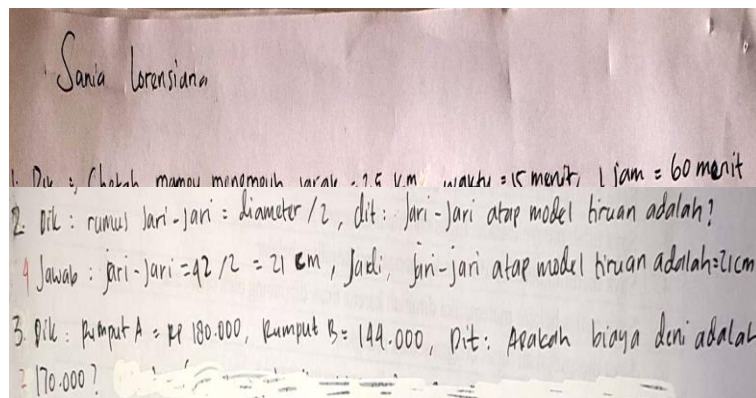 Sania Lorensiana
1. Dik : Chokah mampu menempuh jarak = 2.5 km, waktu = 15 menit, 1 jam = 60 menit
2. Dik : rumus Jari-jari = diameter /2, dit : Jari-Jari atap model tiruan adalah?
4 Jawab : jari-jari = 42 /2 = 21 cm, Jadi, jari-jari atap model tiruan adalah = 21cm
3. Dik : Rumput A = Rp 180.000, Rumput B = 144.000, Dit : Apakah biaya deni adalah
2 170.000 ?